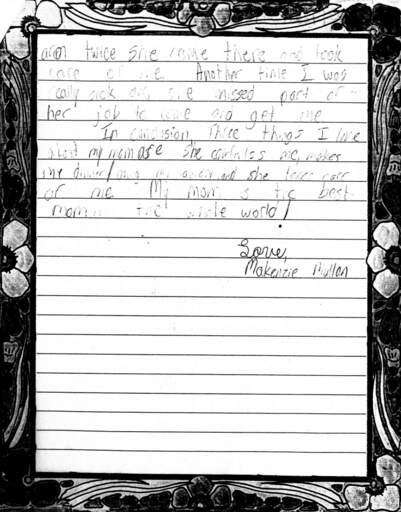 and twice she came there and took
care of me. Another time I was
really sick and she missed part of
her job to come and get me
In conclusion, three things I love
about my mom are she comforts me, makes
my dinner, and she takes care
of me. My mom is the best
mom in the whole world!
Love,
Makenzie Mullan